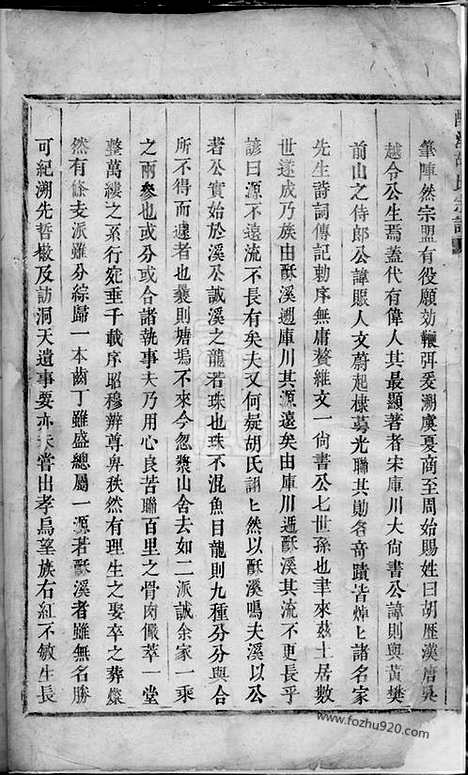 酥溪胡氏宗譜
筆陣然宗盟有役願効鞭弭爰溯虞夏商至周始賜姓曰胡歷漢唐吳
越今公生焉蓋代有偉人其最顯著者宋庫川大尚書公諱則與黃樊
前山之侍郎公諱賬人文蔚起棣萼光聯其勛名竒蹟皆焯匕諸名家
先生詩詞傳記勅序無庸贅維文一尚書公七世孫也聿來茲土居數
世遂成乃族由酥溪遡庫川其源遠矣由庫川逓酥溪其流不更長乎
諺曰源不遠流不長有矣夫又何疑胡氏詡匕然以酥溪鳴夫溪以公
者公實始於溪公誠溪之龍若珠也珠不混魚目龍則九種分分與合
所不得而違者也曩則塘塢不來今忽漿山舍去如二派誠余家一乘
之兩參也或分或合諸執事夫乃用心良苦聯百里之骨肉儼萃一堂
整萬縷之系行宛垂千載序昭穆辨尊卑秩然有理生之娶卒之葬燦
然有條支派雖分綜歸一本齒丁雖盛總屬一源若酥溪者雖無名勝
可紀溯先哲檄及訪洞天遺事要亦未嘗出孝烏望族右紅不敏生長
www.fozhu920.com